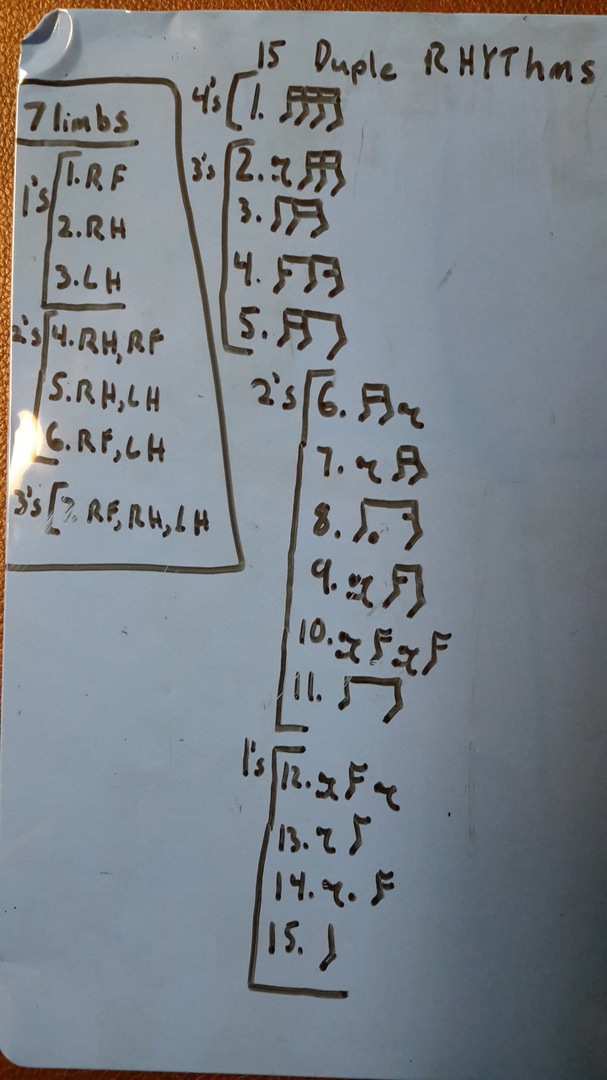 15 Duple RHYThms
7 limbs
1's
1. RF
2. RH
3. LH
2's
4. RH, RF
5. RH, LH
6. RF, LH
3's
7. RF, RH, LH
4's
1.
3's
2.
3.
4.
5.
2's
6.
7.
8.
9.
10.
11.
1's
12.
13.
14.
15.